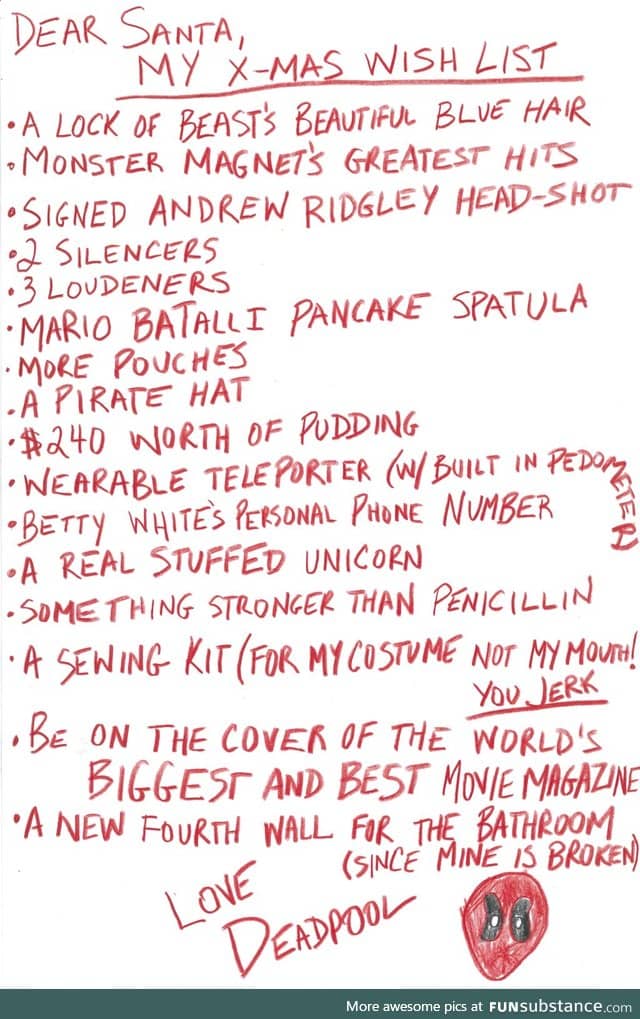 DEAR SANTA,
MY X-MAS WISH LIST
• A LOCK OF BEAST'S BEAUTIFUL BLUE HAIR
• MONSTER MAGNET'S GREATEST HITS
• SIGNED ANDREW RIDGLEY HEAD-SHOT
• 2 SILENCERS
• 3 LOUDENERS
• MARIO BATALLI PANCAKE SPATULA
• MORE POUCHES
• A PIRATE HAT
• $240 WORTH OF PUDDING
• WEARABLE TELEPORTER (W/ BUILT IN PEDOMETER)
• BETTY WHITE'S PERSONAL PHONE NUMBER
• A REAL STUFFED UNICORN
• SOMETHING STRONGER THAN PENICILLIN
• A SEWING KIT (FOR MY COSTUME NOT MY MOUTH!
YOU JERK
• BE ON THE COVER OF THE WORLD'S
BIGGEST AND BEST MOVIE MAGAZINE
• A NEW FOURTH WALL FOR THE BATHROOM
(SINCE MINE IS BROKEN)
LOVE
DEADPOOL
More awesome pics at FUNsubstance.com